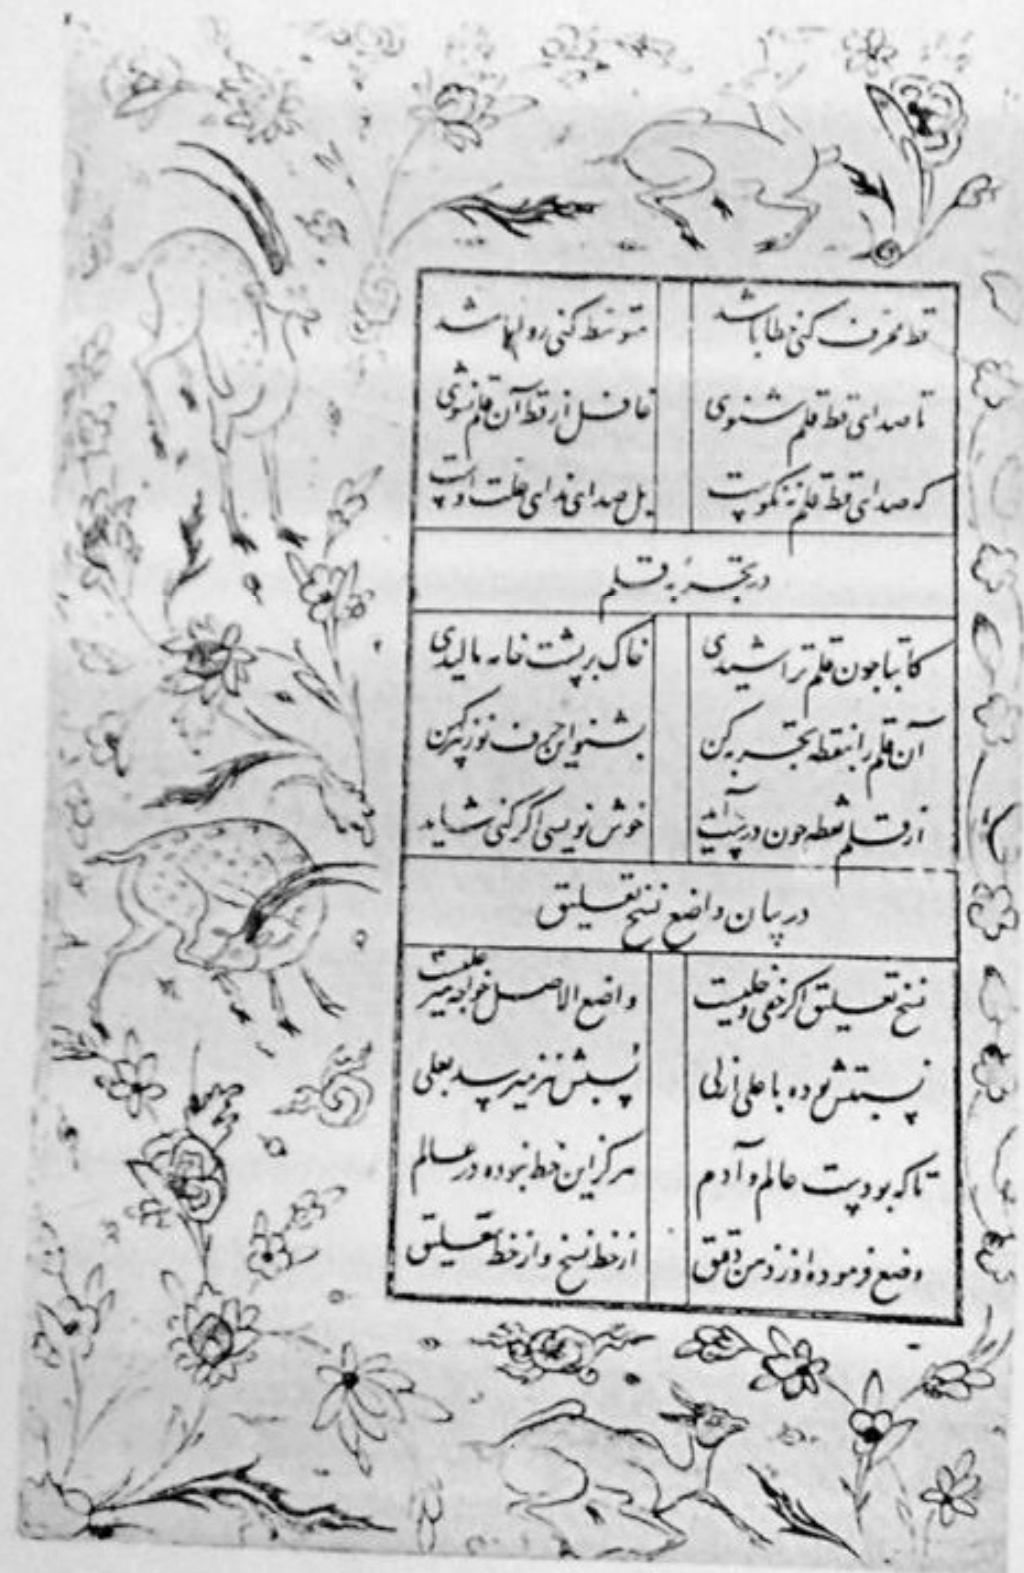 قط محرف کنی خطا باشد متوسط کنی روا باشد
تا صدای قط قلم شنوی غافل از قط آن قلم نشوی
که صدای قط قلم نه نکوست بل صدای ندای
در تجربهٔ قلم
کاتبا چون قلم تراشیدی خاک بر پشت خامه مالیدی
آن قلم را بنقطه تجربه کن بشنو این حرف نو ز پیر کهن
از قلم نقطه چون درست آید خوش نویسی اگر کنی شاید
در بیان واضع نسخ تعلیق
نسخ تعلیق اگر خفی و جلیست واضع الاصل خواجه میر علیست
نسبتش بوده با علی ازلی نسبش نیز میرسد بعلی
تا که بودست عالم و آدم هرگز این خط نبوده در عالم
وضع فرموده او ز ذهن دقیق از خط نسخ و از خط تعلیق